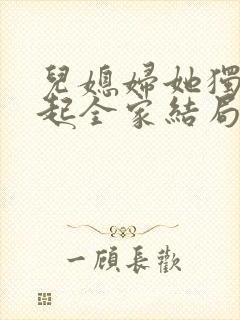 兒媳婦她獨
起全家結局
一顧長歡